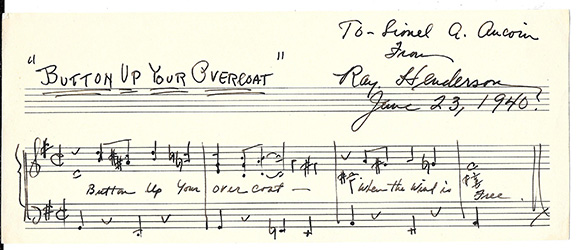 To- Lionel A. Aucoin
From
"BUTTON UP YOUR OVERCOAT"
Ray Henderson
June 23, 1940.
Button Up Your over coat — When the Wind is Free.